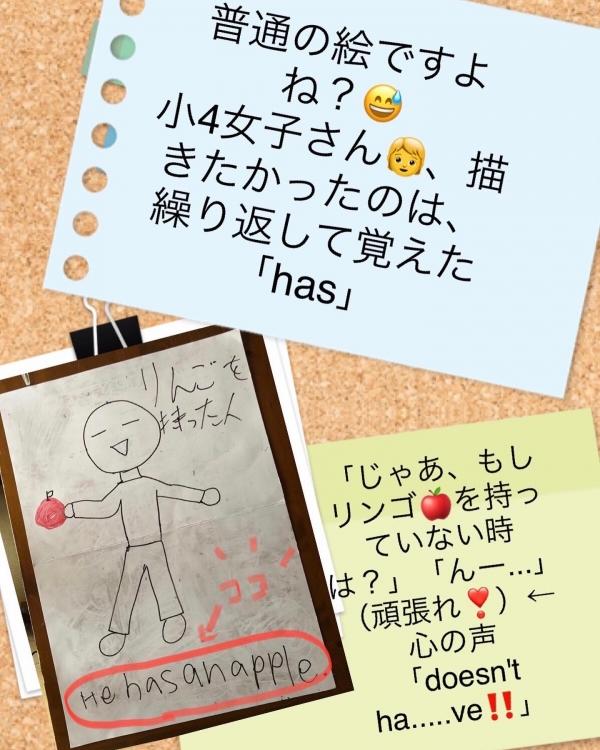 普通の絵ですよ
ね？😅
小4女子さん👧、描
きたかったのは、
繰り返して覚えた
「has」
りんごを
持った人
ココ
He has an apple
「じゃあ、もし
リンゴ🍎を持っ
ていない時
は？」「んー...」
（頑張れ❣️）←
心の声
「doesn't
ha.....ve‼️」